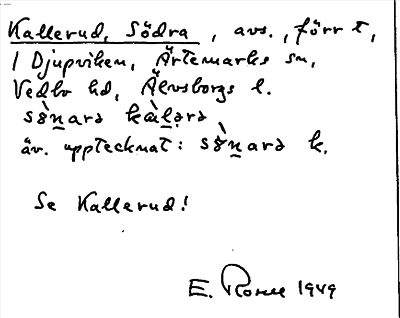 Kallerud, Södra, avs., förr t,
i Djupviken, Ärtemarks sn,
Vedbo hd, Älvsborgs l.
sø̀nara kàlarə
äv. upptecknat: sø̀narə k.
Se Kallerud!
E. 1949